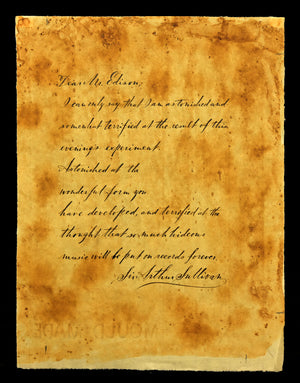 Dear Mr. Edison,
I can only say that I am astonished and
somewhat terrified at the result of this
evening's experiment.
Astonished at the
wonderful form you
have developed, and terrified at the
thought that so much hideous
music will be put on records forever.
Sir Arthur Sullivan